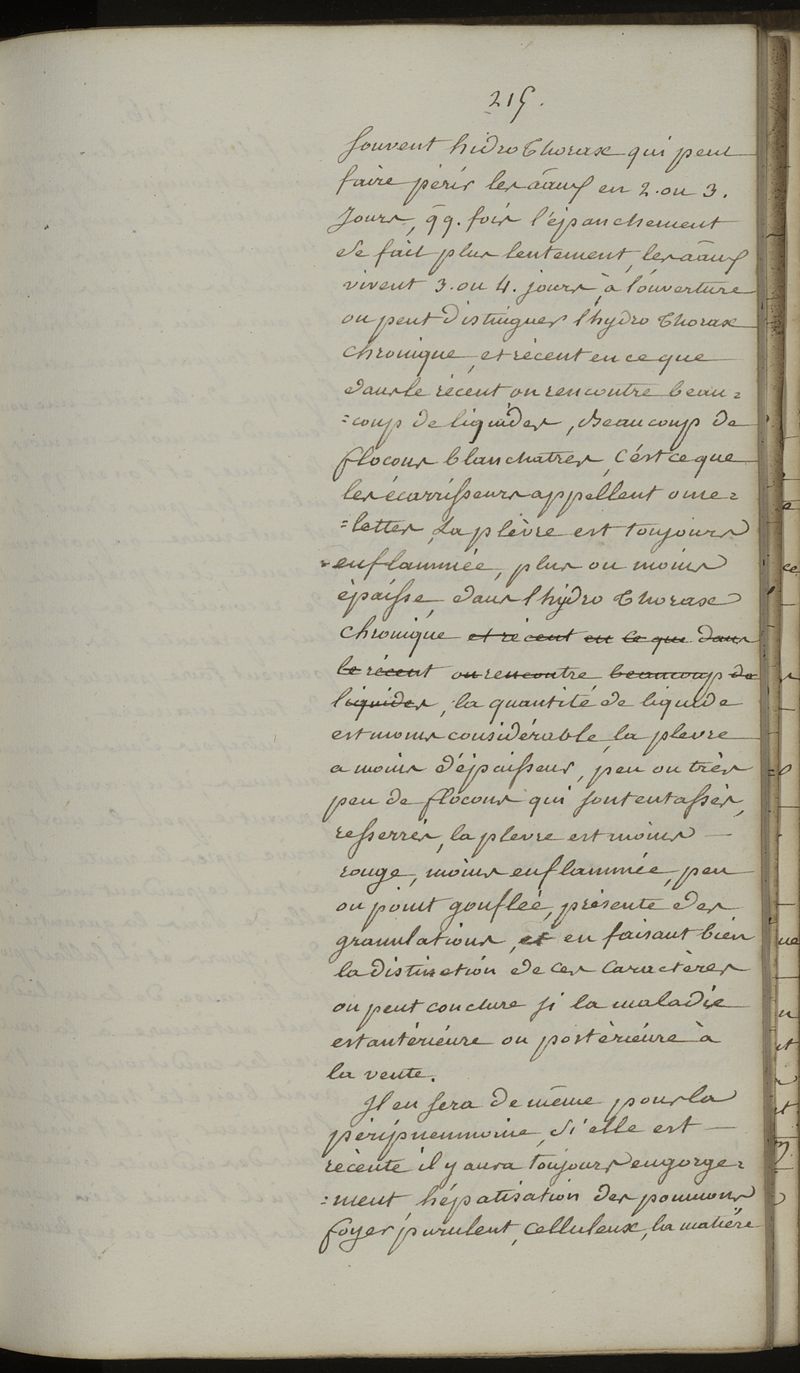 215.
souvent hidro Thorax qui peut
faire périr les aãux en 2. ou 3.
Jours, q̃q. fois l'épanchement
se fait plus lentement, les aãux
vivent 3. ou 4. jours, à l'ouverture
on peut distinguer l'hydro Thorax
chronique, et récent en ce que
dans le récent on rencontre beau=
=coup de liquides, Beaucoup de
flocons blanchatres, c'est ce que
les écarrisseurs appellent ome=
=lettes, La plèvre est toujours
enflammée, plus ou moins
épaisse, dans l'hydro Thorax
Chronique et récent en ce que dans
le récent on rencontre beaucoup de
liquides, la quantité de liquide
est moins considérable, la plevre
a moins d'épaisseur, peu ou très
peu de flocons qui sont entassés,
resserrés, la plevre est moins —
rouge, moins enflammée, peu
ou point gonfleé, présente des
granulations, et en faisant bien
la distinction de ces caractères
on peut conclure si la maladie
est antérieure ou postèrieure à
la vente.
Il en sera de même pour la
péripneumoine, si elle est —
récente il y aura toujours engorge=
=ment hépatisation des poumons
foyer purulent, celluleux, la matière